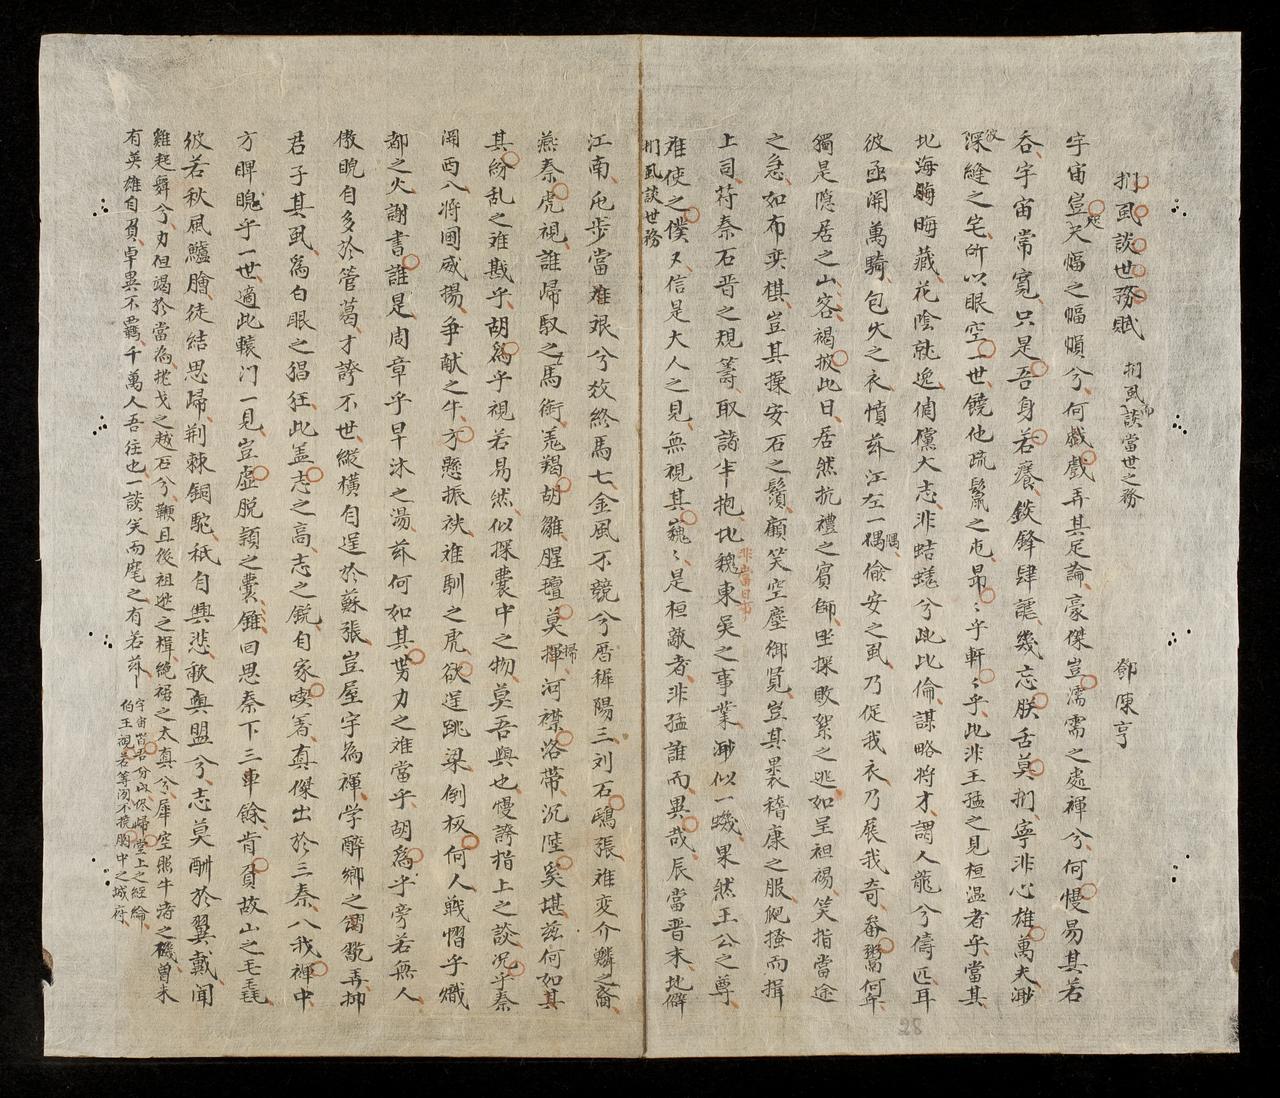 捫虱談世務賦 捫虱而談當世之務 鄧陳亨
宇宙豈大幅之幅㥧兮何戲戲弄其足論豪傑豈濡需之處褌兮何慢易其若
吞宇宙常寬只是吾身若養錟鋒肆讓幾忘朕舌莫捫寧非心雄萬夫渺
深縫之宅所以眼空一世饒他疏鬣之屯昂〻乎軒〻乎此非王猛之見桓溫者乎當其
北海晦藏花陰就逸倜儻大志非蛣蟯兮此比倫謀略將才謂人龍兮儔匹耳
彼函関萬騎包火之衣憤茲江左一隅偷安之虱乃促我衣乃展我奇番鬻何年
獨是隐居之山容褐披此日居然抗禮之賓師坐探敗絮之逃如呈袒裼笑指當途
之急如布奕棋豈其操安石之鬚顧笑空塵御覽豈其裹稽康之服爬搔而揖
上司苻秦石晋之規籌取諸牛抱北魏東吳之事業渺似一蟣果然王公之尊
非當日事
难使之僕又信是大人之見無視其巍〻是桓敵者非猛誰而異哉辰當晋末地僻
捫虱談世務
江南屯步當难艰兮效終馬七金風不競兮厝褲陽三刘石鴟張难变介鱗之裔
燕秦虎視誰歸馭之馬銜羗羯胡雛腥羶莫揮河襟洛帶沉陸奚堪兹何如其
其紛乱之难戡乎胡為乎視若易然似探囊中之物莫吾與也慢誇指上之談况乎秦
関西八將圃威揚争献之牛方懸振袂难馴之虎欲逞跳梁倒板何人戰慴乎熾
都之火謝書誰是周章乎早沐之湯茲何如其势力之难當乎胡為乎旁若無人
傲睨自多於管葛才誇不世縱横自逞於蘇張豈屋宇為褌学醉鄉之謂覩再抑
君子其虱為白眼之猖狂此盖志之高志之銳自家喫着真傑出於三秦八我褌中
方睥睨乎一世適此轅门一見豈虛脱頴之囊雖回思秦下三車餘肯負故山之毛毳
彼若秋風鱸膾徒结思歸荆棘铜駝秖自興悲歃與盟兮志莫酬於翼戴聞
雞起舞兮力但竭於當為挽戈之越石兮鞭且後祖逖之楫绝裾之太真兮犀空照牛渚之磯曾未
有英雄自負卓異不羈千萬人吾往也一談笑而麾之有若茲
宇宙吾分內終歸堂上之經綸
伯王視若等閒不梳胸中之城府